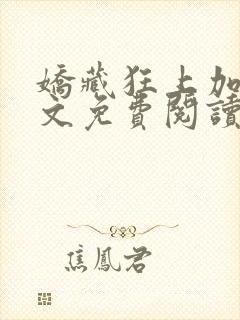 嬌藏狂上加
文免費閱讀
焦鳳君